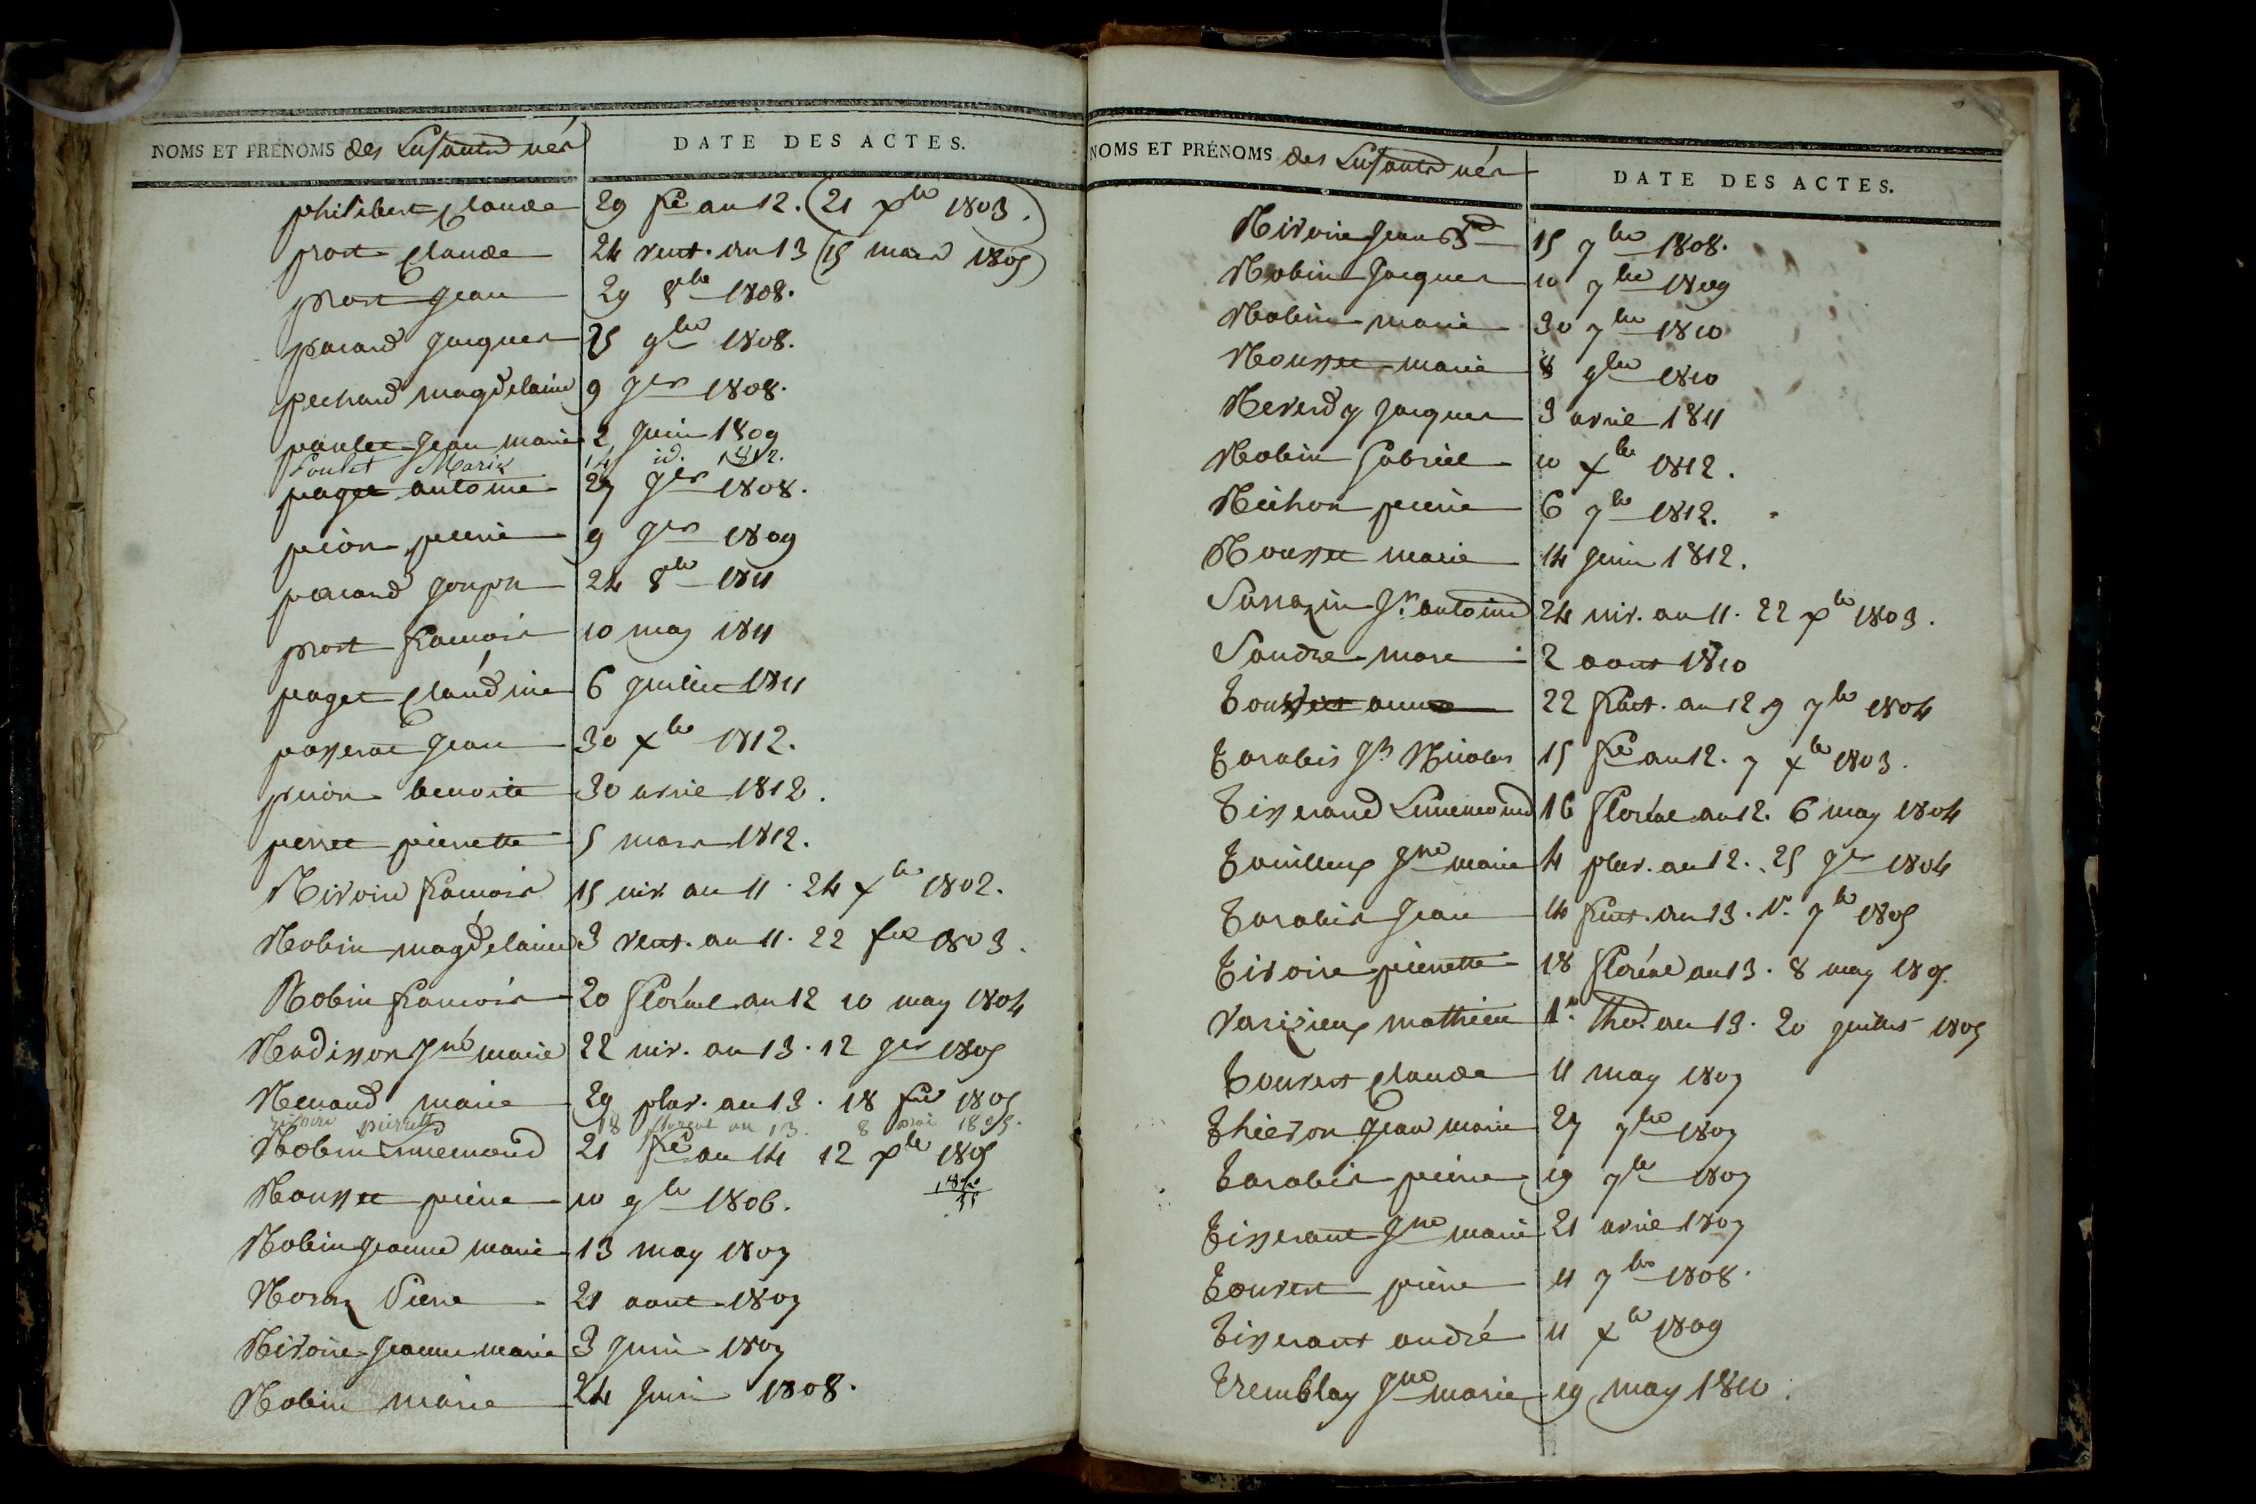 NOMS ET PRÉNOMS des Enfants nés DATE DES ACTES.
philibert Claude 29 fre an 12. (21 xbre 1803.)
prost Claude 24 vent. an 13 (15 mars 1805)
prost Jean 29 8bre 1808.
pacard Jacques 25 9bre 1808.
pechard magdelaine 9 Jer 1808.
paulet Jean marie 2 Juin 1809
Poulet Marie 14 id. 1812.
paget antoine 27 Jer 1808.
pion pierre 9 Jer 1809
pacard Joseph 24 8bre 1811
prost francois 10 may 1811
paget Claudine 6 Juillet 1811
passerat Jean 30 xbre 1812.
pion benoite 30 avril 1812.
perret pierrette 5 mars 1812.
Rivoire francois 15 niv. an 11. 24 xbre 1802.
Robin magdelaine 3 vent. an 11. 22 fre 1803.
Robin francois 20 floréal an 12 10 may 1804
Radisson Jne marie 22 niv. an 13. 12 Jer 1805
Renaud marie 29 pluv. an 13. 18 fer 1805
rivoire pierrette 18 floreal an 13. 8 mai 1805.
Robin Ennemond 21 fre an 14 12 xbre 1805
Rousset pierre 10 9bre 1806.
Robin Jeanne marie 13 may 1807
Pierre 21 aout 1807
Rivoire Jeanne marie 3 Juin 1807
Robin marie 24 Juin 1808.
NOMS ET PRÉNOMS des Enfants nés DATE DES ACTES.
Rivoire Jean 15 7bre 1808.
Robin Jacques 10 7bre 1809
Robin marie 30 7bre 1810
Rousset marie 8 9bre 1810
Reverdy Jacques 3 avril 1811
Robin Gabriel 10 xbre 1812.
Richon pierre 6 7bre 1812.
Rousset marie 14 Juin 1812.
Sarrazin Jn antoine 24 niv. an 11. 22 xbre 1803.
Sandre marc 2 aout 1810
anne 22 fruct. an 12 9 7bre 1804
Tarabis Jn Nicolas 15 fre an 12. 7 xbre 1803.
Tisserand Ennemond 16 floréal an 12. 6 may 1804
Touilleux Jne marie 4 pluv. an 12. 25 Jer 1804
Tarabis Jean 14 fruct. an 13. 1er 7bre 1805
Tivoire pierrette 18 floréal an 13. 8 may 1805.
Varizieux mathieu 1er thor. an 13. 20 Juillet 1805
Touvert Claude 11 may 1807
Thievon Jean marie 27 7bre 1807
Tarabis pierre 19 7bre 1807
Tisserant Jne marie 21 avril 1807
Touvert pierre 11 7bre 1808.
Tisserant andré 11 xbre 1809
Tremblay Jne marie 19 may 1810.